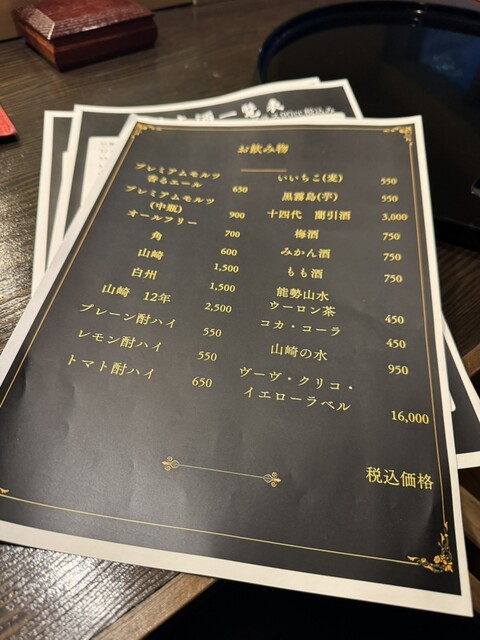 酒一覧表
お飲み物
プレミアムモルツ
香るエール 650
プレミアムモルツ
(中瓶) 900
オールフリー 700
角 600
山崎 1,500
白州 1,500
山崎 12年 2,500
プレーン酎ハイ 550
レモン酎ハイ 550
トマト酎ハイ 650
いいちこ(麦) 550
黒霧島(芋) 550
十四代 蘭引酒 3,000
梅酒 750
みかん酒 750
もも酒 750
能勢山水
ウーロン茶 450
コカ・コーラ 450
山崎の水 950
ヴーヴ・クリコ・
イエローラベル 16,000
税込価格